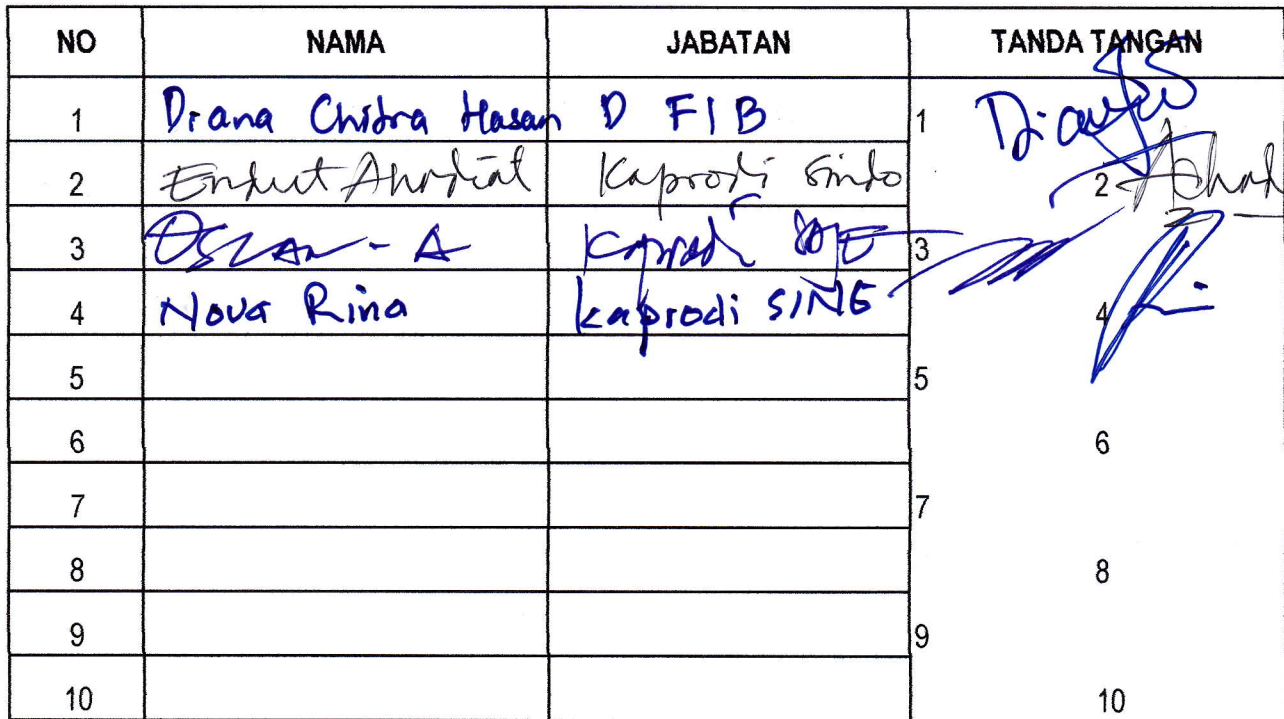 NO NAMA JABATAN TANDA TANGAN
1 Diana Chidra Hasan D FIB 1
2 Endut Ahadiat Kaprodi Sindo 2
3 Oslan - A Kaprodi 3
4 Nova Rina kaprodi SING 4
5 5
6 6
7 7
8 8
9 9
10 10